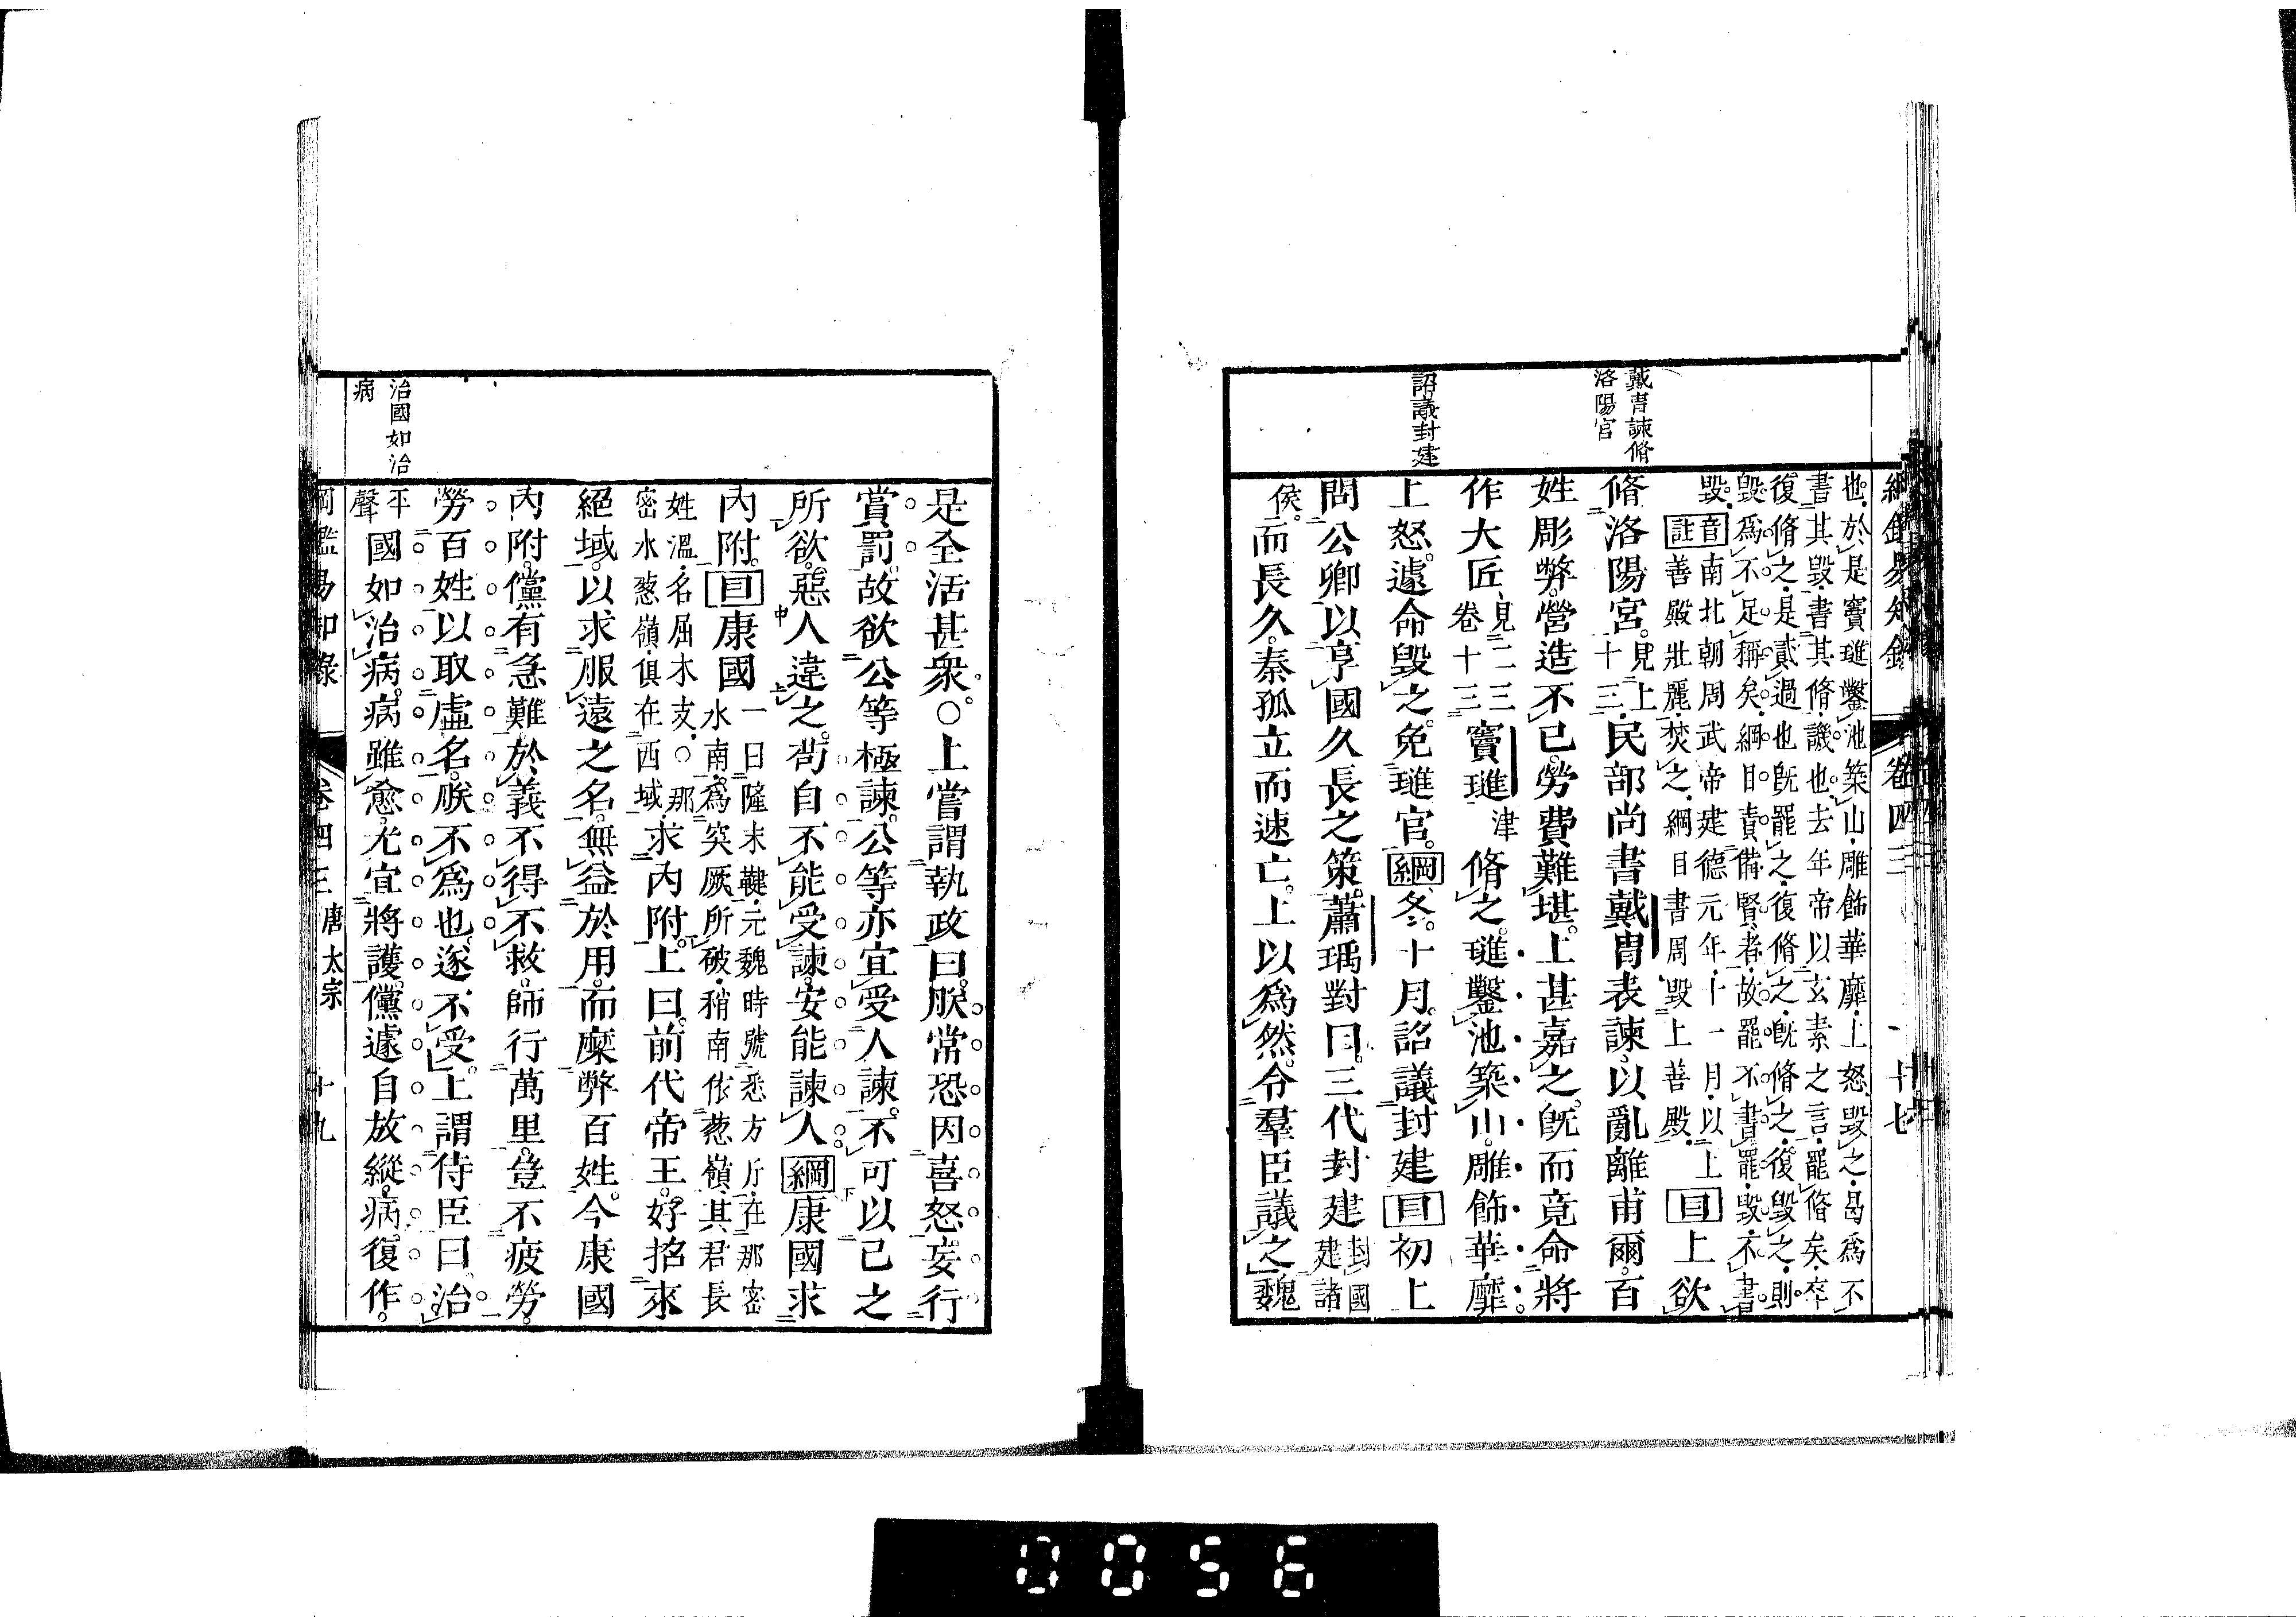 綱鑑易知錄 卷四三 十七
戴冑諫脩
洛陽宮
詔議封建
也。於是竇璡鑿池築山。雕飾華靡。上怒毀之。曷爲不
書其毀。書其脩。譏也。去年帝以玄素之言。罷脩矣。卒
復脩之。是貳過也。旣罷之。復脩之。旣脩之。復毀之。則
毀爲不足稱矣。綱目責備賢者。故罷不書罷。毀不書
毀。音註南北朝周武帝建德元年。十一月。以上
善殿壯麗。焚之。綱目書周毀上善殿。目上欲
脩洛陽宮。見上十三。民部尚書戴冑表諫。以亂離甫爾。百
姓彫弊。營造不已。勞費難堪。上甚嘉之。旣而竟命將
作大匠見二三卷十三竇璡津脩之。璡鑿池築山。雕飾華靡。
上怒。遽命毀之。免璡官。綱冬。十月。詔議封建目初上
問公卿以享國久長之策。蕭瑀對曰。三代封建封國建諸
侯。而長久。秦孤立而速亡。上以爲然。令羣臣議之。魏
是全活甚衆。○上嘗謂執政曰。朕常恐因喜怒。妄行
賞罰。故欲公等極諫。公等亦宜受人諫。不可以己之
所欲。惡人違之。苟自不能受諫。安能諫人。綱康國求
內附。目康國一曰隆末鞬。元魏時號悉方斤。在那密
水南。爲突厥所破。稍南依蔥嶺。其君長
姓溫。名屈木支。○那
密水蔥嶺。俱在西域。求內附。上曰。前代帝王。好招來
絕域。以求服遠之名。無益於用。而糜弊百姓。今康國
內附。儻有急難。於義不得不救。師行萬里。豈不疲勞。
勞百姓以取虛名。朕不爲也。遂不受。上謂侍臣曰。治
平聲國如治病。病雖愈。尤宜將護。儻遽自放縱。病復作。
治國如治
病
綱鑑易知錄 卷四三 唐太宗 十九
0056